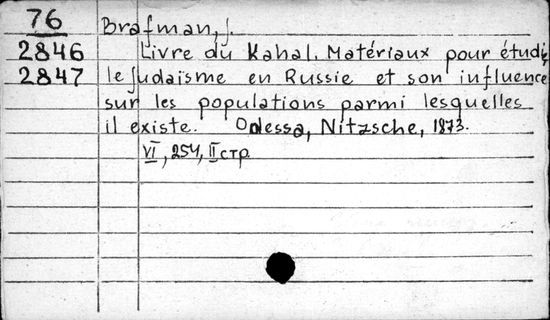 76 Brafman, J.
2846 Livre du Kahal. Matériaux pour étudi
2847 le judaïsme en Russie et son influence
sur les populations parmi lesquelles
il existe. Odessa, Nitzsche, 1873.
VI, 254, II стр.